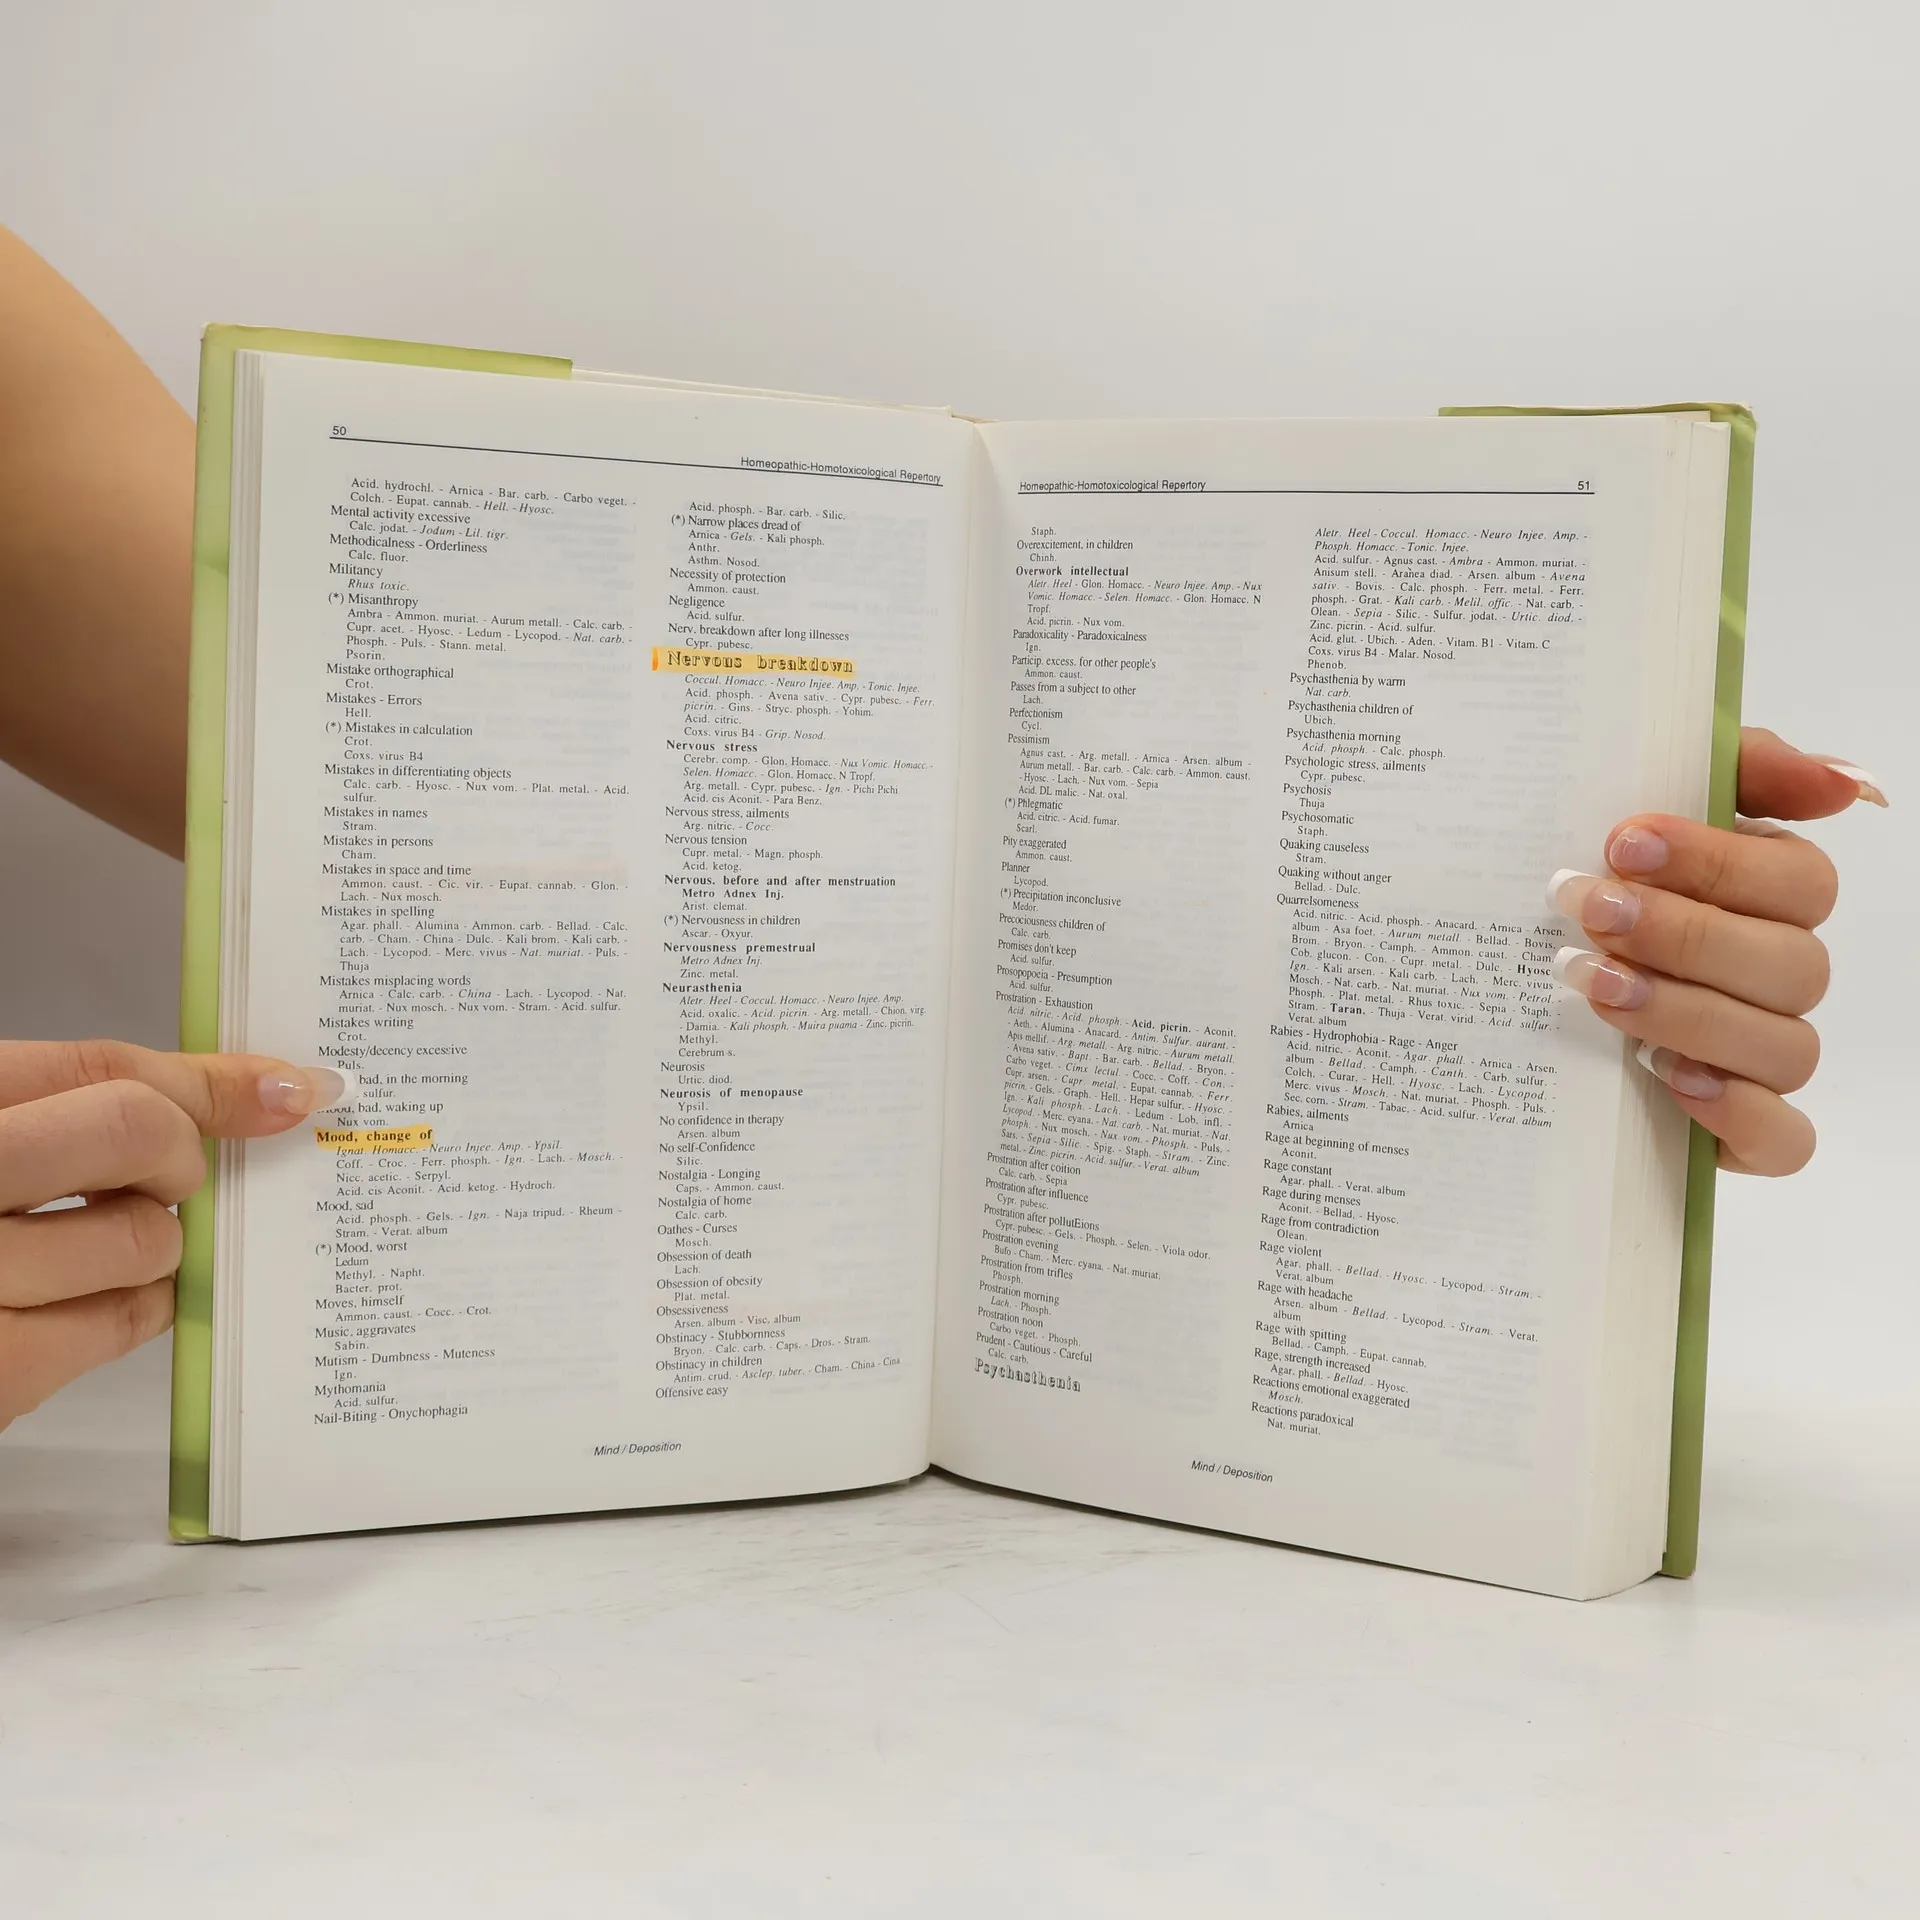 50
Homeopathic-Homotoxicological Repertory
Acid. hydrochl. - Arnica - Bar. carb. - Carbo veget. -
Colch. - Eupat. cannab. - Hell. - Hyosc.
Mental activity excessive
Calc. jodat. - Jodum - Lil. tigr.
Methodicalness - Orderliness
Calc. fluor.
Militancy
Rhus toxic.
(*) Misanthropy
Ambra - Ammon. muriat. - Aurum metall. - Calc. carb. -
Cupr. acet. - Hyosc. - Ledum - Lycopod. - Nat. carb. -
Phosph. - Puls. - Stann. metal.
Psorin.
Mistake orthographical
Crot.
Mistakes - Errors
Hell.
(*) Mistakes in calculation
Crot.
Coxs. virus B4
Mistakes in differentiating objects
Calc. carb. - Hyosc. - Nux vom. - Plat. metal. - Acid.
sulfur.
Mistakes in names
Stram.
Mistakes in persons
Cham.
Mistakes in space and time
Ammon. caust. - Cic. vir. - Eupat. cannab. - Glon. -
Lach. - Nux mosch.
Mistakes in spelling
Agar. phall. - Alumina - Ammon. carb. - Bellad. - Calc.
carb. - Cham. - China - Dulc. - Kali brom. - Kali carb. -
Lach. - Lycopod. - Merc. vivus - Nat. muriat. - Puls. -
Thuja
Mistakes misplacing words
Arnica - Calc. carb. - China - Lach. - Lycopod. - Nat.
muriat. - Nux mosch. - Nux vom. - Stram. - Acid. sulfur.
Mistakes writing
Crot.
Modesty/decency excessive
Puls.
bad, in the morning
sulfur.
Mood, bad, waking up
Nux vom.
Mood, change of
Ignat. Homacc. - Neuro Injee. Amp. - Ypsil.
Coff. - Croc. - Ferr. phosph. - Ign. - Lach. - Mosch. -
Nicc. acetic. - Serpyl.
Acid. cis Aconit. - Acid. ketog. - Hydroch.
Mood, sad
Acid. phosph. - Gels. - Ign. - Naja tripud. - Rheum -
Stram. - Verat. album
(*) Mood, worst
Ledum
Methyl. - Napht.
Bacter. prot.
Moves, himself
Ammon. caust. - Cocc. - Crot.
Music, aggravates
Sabin.
Mutism - Dumbness - Muteness
Ign.
Mythomania
Acid. sulfur.
Nail-Biting - Onychophagia
Acid. phosph. - Bar. carb. - Silic.
(*) Narrow places dread of
Arnica - Gels. - Kali phosph.
Anthr.
Asthm. Nosod.
Necessity of protection
Ammon. caust.
Negligence
Acid. sulfur.
Nerv. breakdown after long illnesses
Cypr. pubesc.
Nervous breakdown
Coccul. Homacc. - Neuro Injee. Amp. - Tonic. Injee.
Acid. phosph. - Avena sativ. - Cypr. pubesc. - Ferr.
picrin. - Gins. - Stryc. phosph. - Yohim.
Acid. citric.
Coxs. virus B4 - Grip. Nosod.
Nervous stress
Cerebr. comp. - Glon. Homacc. - Nux Vomic. Homacc. -
Selen. Homacc. - Glon. Homacc. N Tropf.
Arg. metall. - Cypr. pubesc. - Ign. - Pichi Pichi
Acid. cis Aconit. - Para Benz.
Nervous stress, ailments
Arg. nitric. - Cocc.
Nervous tension
Cupr. metal. - Magn. phosph.
Acid. ketog.
Nervous. before and after menstruation
Metro Adnex Inj.
Arist. clemat.
(*) Nervousness in children
Ascar. - Oxyur.
Nervousness premestrual
Metro Adnex Inj.
Zinc. metal.
Neurasthenia
Aletr. Heel - Coccul. Homacc. - Neuro Injee. Amp.
Acid. oxalic. - Acid. picrin. - Arg. metall. - Chion. virg.
- Damia. - Kali phosph. - Muira puama - Zinc. picrin.
Methyl.
Cerebrum s.
Neurosis
Urtic. diod.
Neurosis of menopause
Ypsil.
No confidence in therapy
Arsen. album
No self-Confidence
Silic.
Nostalgia - Longing
Caps. - Ammon. caust.
Nostalgia of home
Calc. carb.
Oathes - Curses
Mosch.
Obsession of death
Lach.
Obsession of obesity
Plat. metal.
Obsessiveness
Arsen. album - Visc. album
Obstinacy - Stubbornness
Bryon. - Calc. carb. - Caps. - Dros. - Stram.
Obstinacy in children
Antim. crud. - Asclep. tuber. - Cham. - China - Cina
Offensive easy
Mind / Deposition
Homeopathic-Homotoxicological Repertory
51
Staph.
Overexcitement, in children
Chinh.
Overwork intellectual
Aletr. Heel - Glon. Homacc. - Neuro Injee. Amp. - Nux
Vomic. Homacc. - Selen. Homacc. - Glon. Homacc. N
Tropf.
Acid. picrin. - Nux vom.
Paradoxicality - Paradoxicalness
Ign.
Particip. excess. for other people's
Ammon. caust.
Passes from a subject to other
Lach.
Perfectionism
Cycl.
Pessimism
Agnus cast. - Arg. metall. - Arnica - Arsen. album -
Aurum metall. - Bar. carb. - Calc. carb. - Ammon. caust.
- Hyosc. - Lach. - Nux vom. - Sepia
Acid. DL malic. - Nat. oxal.
(*) Phlegmatic
Acid. citric. - Acid. fumar.
Scarl.
Pity exaggerated
Ammon. caust.
Planner
Lycopod.
(*) Precipitation inconclusive
Medor.
Precociousness children of
Calc. carb.
Promises don't keep
Acid. sulfur.
Prosopopoeia - Presumption
Acid. sulfur.
Prostration - Exhaustion
Acid. nitric. - Acid. phosph. - Acid. picrin. - Aconit.
- Aeth. - Alumina - Anacard. - Antim. Sulfur. aurant. -
Apis mellif. - Arg. metall. - Arg. nitric. - Aurum metall.
- Avena sativ. - Bapt. - Bar. carb. - Bellad. - Bryon. -
Carbo veget. - Cimx lectul. - Cocc. - Coff. - Con. -
Cupr. arsen. - Cupr. metal. - Eupat. cannab. - Ferr.
picrin. - Gels. - Graph. - Hell. - Hepar sulfur. - Hyosc. -
Ign. - Kali phosph. - Lach. - Ledum - Lob. infl. -
Lycopod. - Merc. cyana. - Nat. carb. - Nat. muriat. - Nat.
phosph. - Nux mosch. - Nux vom. - Phosph. - Puls. -
Sars. - Sepia - Silic. - Spig. - Staph. - Stram. - Zinc.
metal. - Zinc. picrin. - Acid. sulfur. - Verat. album
Prostration after coition
Calc. carb. - Sepia
Prostration after influence
Cypr. pubesc.
Prostration after pollutEions
Cypr. pubesc. - Gels. - Phosph. - Selen. - Viola odor.
Prostration evening
Bufo - Cham. - Merc. cyana. - Nat. muriat.
Prostration from trifles
Phosph.
Prostration morning
Lach. - Phosph.
Prostration noon
Carbo veget. - Phosph.
Prudent - Cautious - Careful
Calc. carb.
Psychasthenia
Aletr. Heel - Coccul. Homacc. - Neuro Injee. Amp. -
Phosph. Homacc. - Tonic. Injee.
Acid. sulfur. - Agnus cast. - Ambra - Ammon. muriat. -
Anisum stell. - Aranea diad. - Arsen. album - Avena
sativ. - Bovis. - Calc. phosph. - Ferr. metal. - Ferr.
phosph. - Grat. - Kali carb. - Melil. offic. - Nat. carb. -
Olean. - Sepia - Silic. - Sulfur. jodat. - Urtic. diod. -
Zinc. picrin. - Acid. sulfur.
Acid. glut. - Ubich. - Aden. - Vitam. B1 - Vitam. C
Coxs. virus B4 - Malar. Nosod.
Phenob.
Psychasthenia by warm
Nat. carb.
Psychasthenia children of
Ubich.
Psychasthenia morning
Acid. phosph. - Calc. phosph.
Psychologic stress, ailments
Cypr. pubesc.
Psychosis
Thuja
Psychosomatic
Staph.
Quaking causeless
Stram.
Quaking without anger
Bellad. - Dulc.
Quarrelsomeness
Acid. nitric. - Acid. phosph. - Anacard. - Arnica - Arsen.
album - Asa foet. - Aurum metall. - Bellad. - Bovis.
Brom. - Bryon. - Camph. - Ammon. caust. - Cham.
Cob. glucon. - Con. - Cupr. metal. - Dulc. - Hyosc
Ign. - Kali arsen. - Kali carb. - Lach. - Merc. vivus -
Mosch. - Nat. carb. - Nat. muriat. - Nux vom. - Petrol. -
Phosph. - Plat. metal. - Rhus toxic. - Sepia - Staph. -
Stram. - Taran. - Thuja - Verat. virid. - Acid. sulfur. -
Verat. album
Rabies - Hydrophobia - Rage - Anger
Acid. nitric. - Aconit. - Agar. phall. - Arnica - Arsen.
album - Bellad. - Camph. - Canth. - Carb. sulfur. -
Colch. - Curar. - Hell. - Hyosc. - Lach. - Lycopod. -
Merc. vivus - Mosch. - Nat. muriat. - Phosph. - Puls. -
Sec. corn. - Stram. - Tabac. - Acid. sulfur. - Verat. album
Rabies, ailments
Arnica
Rage at beginning of menses
Aconit.
Rage constant
Agar. phall. - Verat. album
Rage during menses
Aconit. - Bellad. - Hyosc.
Rage from contradiction
Olean.
Rage violent
Agar. phall. - Bellad. - Hyosc. - Lycopod. - Stram. -
Verat. album
Rage with headache
Arsen. album - Bellad. - Lycopod. - Stram. - Verat.
album
Rage with spitting
Bellad. - Camph. - Eupat. cannab.
Rage, strength increased
Agar. phall. - Bellad. - Hyosc.
Reactions emotional exaggerated
Mosch.
Reactions paradoxical
Nat. muriat.
Mind / Deposition